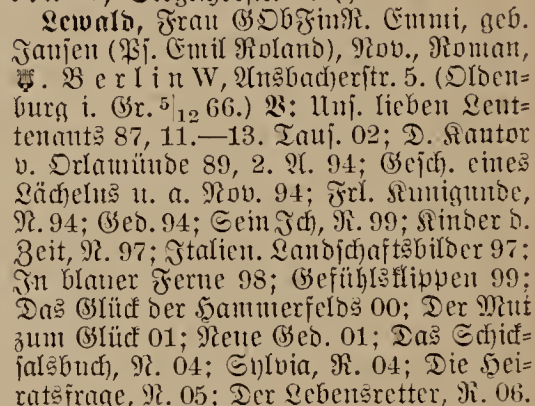 Lewald, Frau GObFinR. Emmi, geb.
Jansen (Ps. Emil Roland), Nov., Roman,
Berlin W, Ansbacherstr. 5. (Olden-
burg i. Gr. 5/12 66.) V: Uns. lieben Leut-
tenants 87, 11.—13. Taus. 02; D. Kantor
v. Orlamünde 89, 2. A. 94; Gesch. eines
Lächelns u. a. Nov. 94; Frl. Kunigunde,
N. 94; Ged. 94; Sein Ich, R. 99; Kinder d.
Zeit, N. 97; Italien. Landschaftsbilder 97;
In blauer Ferne 98; Gefühlsklippen 99;
Das Glück der Hammerfelds 00; Der Mut
zum Glück 01; Neue Ged. 01; Das Schick-
salsbuch, N. 04; Sylvia, R. 04; Die Hei-
ratsfrage, N. 05; Der Lebensretter, R. 06.